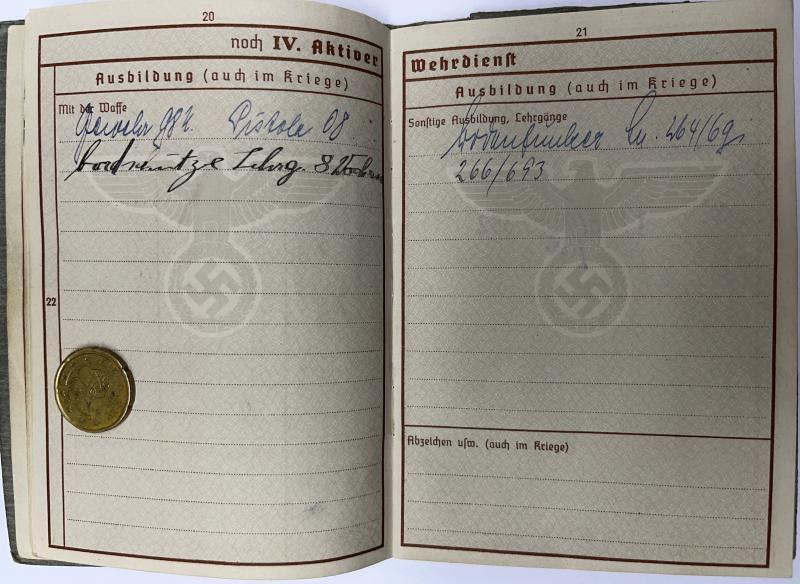 20
noch IV. Aktiver
Ausbildung (auch im Kriege)
Mit der Waffe
Gewehr 98k. Pistole 08.
Bordschütze Lehrg. 8 Wochen
22
21
Wehrdienst
Ausbildung (auch im Kriege)
Sonstige Ausbildung, Lehrgänge
Bodenfunker Ln. 264/69;
266/693
Abzeichen usw. (auch im Kriege)